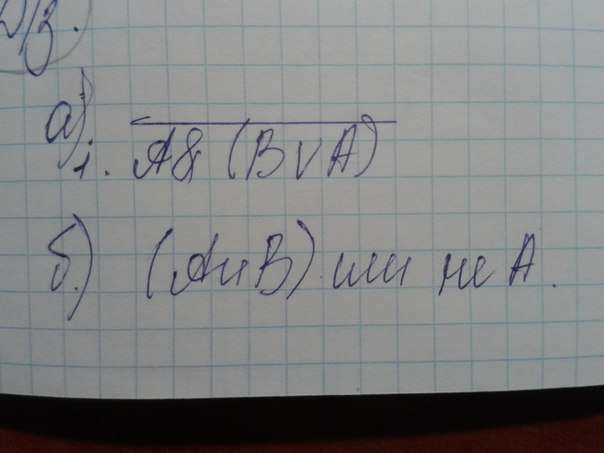 Д/З.
а)
1. A&(B∨A)
б) (А и В) или не А.